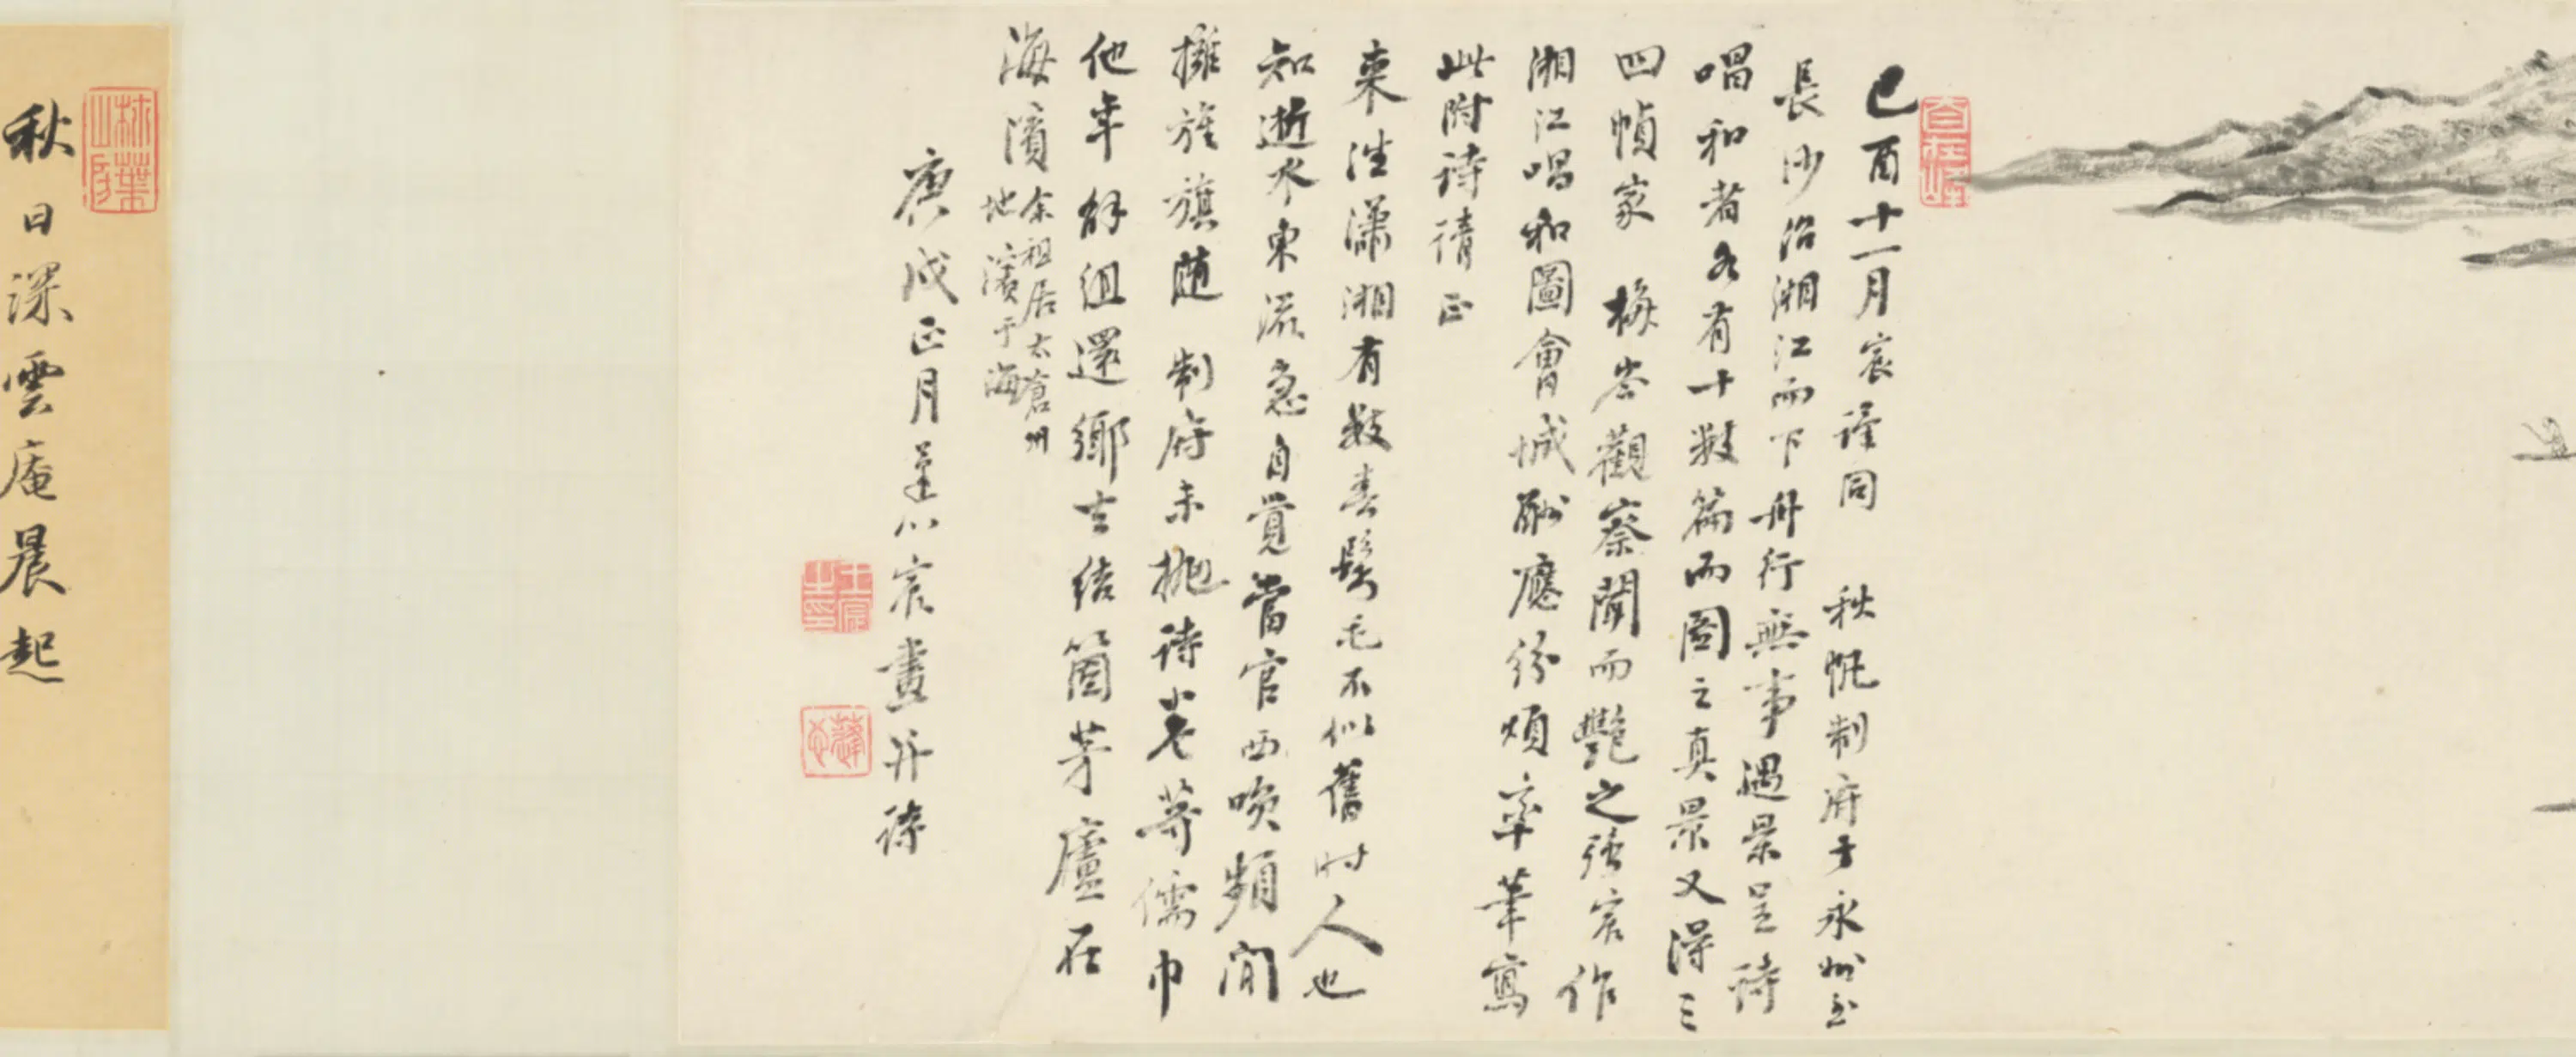 己酉十一月宸謹同 秋帆制府于永州至
長沙沿湘江而下舟行無事遇景呈詩
唱和者各有十數篇而圖之真景又得三
四幀家 梅岑觀察聞而艷之強宸作
湘江唱和圖會城酬應紛煩率筆寫
此附詩請正
來往瀟湘有數春鬢毛不似舊時人也
知逝水東流急自覺當官西喚頻閒
擁旌旗隨 制府未拋詩卷等儒巾
他年解組還鄉去結箇茅廬在
海濱
余祖居太倉州
地濱于海
庚戌正月蓬心宸畫并詩
秋日深雲庵晨起